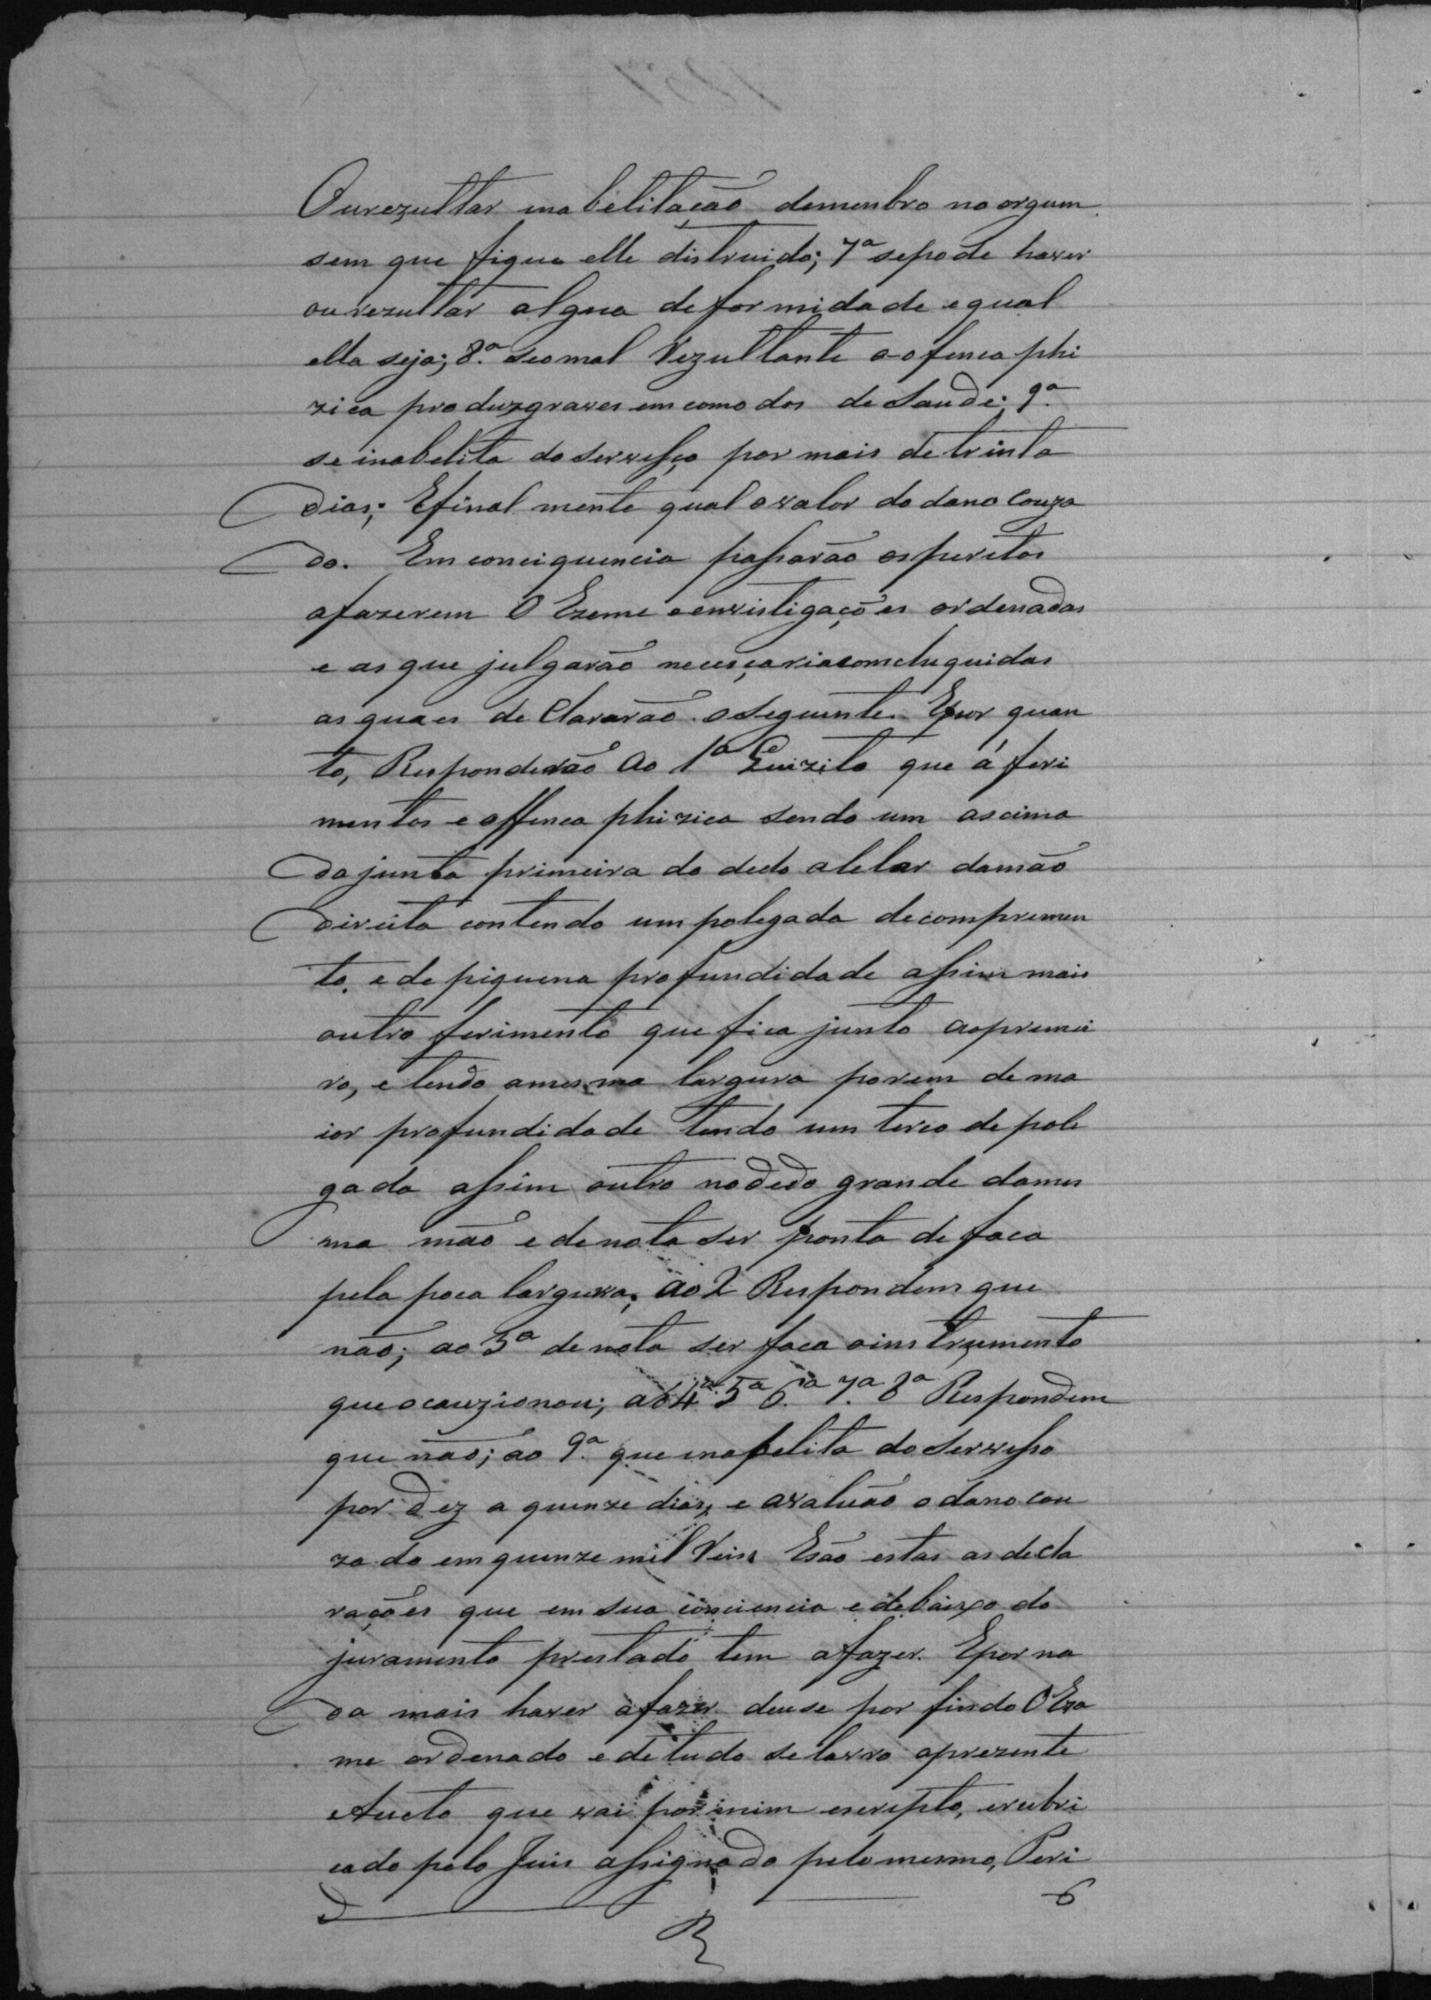 Ou rezultar inabelitação demembro no orgam
sem que fique elle distruido; 7ª sepode haver
ou rezultar algua deformidade e qual
ella seja; 8.ª seo mal Rezultante a ofenca phi
zica produz graves emcomodos de Saude; 9ª
se inabelita do servisso por mais de trinta
dias; E final mente qual o valor do dano cauza
do. Em conciquencia passarão os peritos
afazerem O Ezame e envistigações ordenadas
e as que julgarão necesçarias comcluquidas
as quaes de Clararão o seguinte. E por quan
to, Responderão ao 1ª Quizito que á feri
mentos e offenca phizica sendo um ascima
da junta primeira do dedo alelar da mão
direita contendo um polegada de comprimen
to, e de piquena profundidade assim mais
outro ferimento que fica junto ao premei
ro, e tendo amesma largura porem de ma
ior profundidade tendo um terco de pole
gada assim outro no dedo grande da mes
ma mão e denota ser ponta de faca
pela poca largura; ao 2 Respondem que
não; ao 3ª denota ser faca o instrumento
que o cauzionou; ao 4ª 5ª 6.ª 7.ª 8ª Respondem
que não; ao 9.ª que inabelita do Servisso
por dez a quinze dias, e avaluão o dano cau
zado em quinze mil Reis. E são estas as decla
rações que em sua conciencia e debaixo do
juramento prestado tem afazer. E por na
da mais haver afazer deuse por findo O Eza
me ordenado e de tudo se lavro aprezente
Aucto que vai por mim escripto, e rubri
cado pelo Juis assignado pelo mesmo, Peri